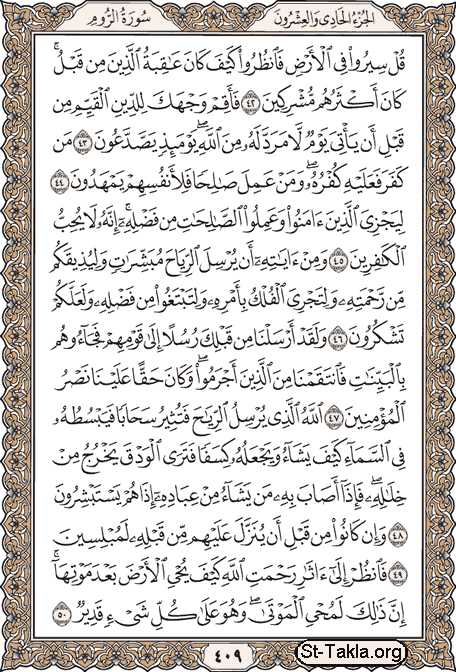 سُورَةُ الرُّومِ الجُزْءُ الحَادِى وَالعِشْرُونَ
قُلْ سِيرُوا۟ فِى ٱلْأَرْضِ فَٱنظُرُوا۟ كَيْفَ كَانَ عَـٰقِبَةُ ٱلَّذِينَ مِن قَبْلُ ۚ
كَانَ أَكْثَرُهُم مُّشْرِكِينَ ٤٢ فَأَقِمْ وَجْهَكَ لِلدِّينِ ٱلْقَيِّمِ مِن
قَبْلِ أَن يَأْتِىَ يَوْمٌ لَّا مَرَدَّ لَهُۥ مِنَ ٱللَّهِ ۖ يَوْمَئِذٍ يَصَّدَّعُونَ ٤٣ مَن
كَفَرَ فَعَلَيْهِ كُفْرُهُۥ ۖ وَمَنْ عَمِلَ صَـٰلِحًا فَلِأَنفُسِهِمْ يَمْهَدُونَ ٤٤
لِيَجْزِىَ ٱلَّذِينَ ءَامَنُوا۟ وَعَمِلُوا۟ ٱلصَّـٰلِحَـٰتِ مِن فَضْلِهِۦٓ ۚ إِنَّهُۥ لَا يُحِبُّ
ٱلْكَـٰفِرِينَ ٤٥ وَمِنْ ءَايَـٰتِهِۦٓ أَن يُرْسِلَ ٱلرِّيَاحَ مُبَشِّرَٰتٍ وَلِيُذِيقَكُم
مِّن رَّحْمَتِهِۦ وَلِتَجْرِىَ ٱلْفُلْكُ بِأَمْرِهِۦ وَلِتَبْتَغُوا۟ مِن فَضْلِهِۦ وَلَعَلَّكُمْ
تَشْكُرُونَ ٤٦ وَلَقَدْ أَرْسَلْنَا مِن قَبْلِكَ رُسُلًا إِلَىٰ قَوْمِهِمْ فَجَآءُوهُم
بِٱلْبَيِّنَـٰتِ فَٱنتَقَمْنَا مِنَ ٱلَّذِينَ أَجْرَمُوا۟ ۖ وَكَانَ حَقًّا عَلَيْنَا نَصْرُ
ٱلْمُؤْمِنِينَ ٤٧ ٱللَّهُ ٱلَّذِى يُرْسِلُ ٱلرِّيَـٰحَ فَتُثِيرُ سَحَابًا فَيَبْسُطُهُۥ
فِى ٱلسَّمَآءِ كَيْفَ يَشَآءُ وَيَجْعَلُهُۥ كِسَفًا فَتَرَى ٱلْوَدْقَ يَخْرُجُ مِنْ
خِلَـٰلِهِۦ ۖ فَإِذَآ أَصَابَ بِهِۦ مَن يَشَآءُ مِنْ عِبَادِهِۦٓ إِذَا هُمْ يَسْتَبْشِرُونَ
٤٨ وَإِن كَانُوا۟ مِن قَبْلِ أَن يُنَزَّلَ عَلَيْهِم مِّن قَبْلِهِۦ لَمُبْلِسِينَ
٤٩ فَٱنظُرْ إِلَىٰٓ ءَاثَـٰرِ رَحْمَتِ ٱللَّهِ كَيْفَ يُحْىِ ٱلْأَرْضَ بَعْدَ مَوْتِهَآ ۚ
إِنَّ ذَٰلِكَ لَمُحْىِ ٱلْمَوْتَىٰ ۖ وَهُوَ عَلَىٰ كُلِّ شَىْءٍ قَدِيرٌ ٥٠
٤٠٩
St-Takla.org